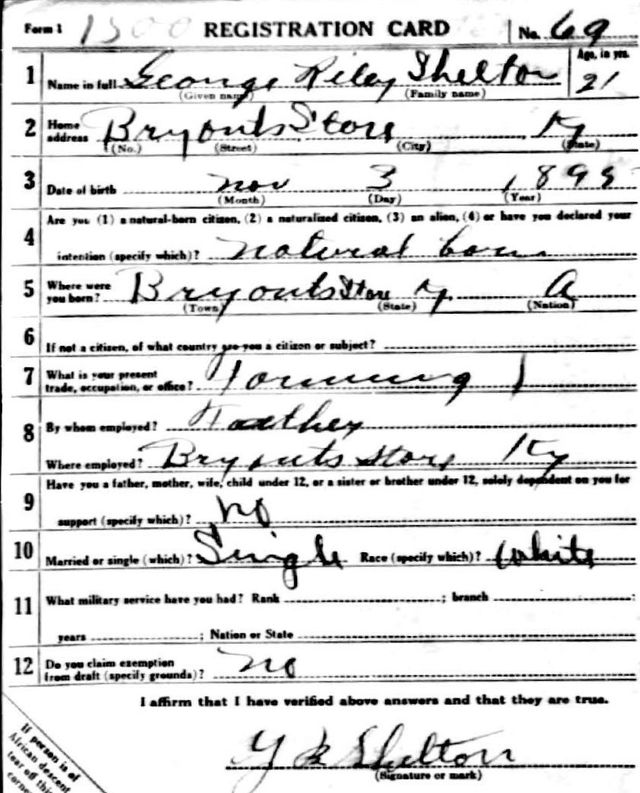 Form 1 1500 REGISTRATION CARD No. 69
1 Name in full George Riley Shelton Age, in yrs. 21
(Given name) (Family name)
2 Home address Bryants Store Ky
(No.) (Street) (City) (State)
3 Date of birth Nov 3 189
(Month) (Day) (Year)
Are you (1) a natural-born citizen, (2) a naturalized citizen, (3) an alien, (4) or have you declared your
4 intention (specify which)? natural born
5 Where were you born? Bryants Store Ky A
(Town) (State) (Nation)
6 If not a citizen, of what country are you a citizen or subject?
7 What is your present trade, occupation, or office? Farming 1
8 By whom employed? Father
Where employed? Bryants Store Ky
Have you a father, mother, wife, child under 12, or a sister or brother under 12, solely dependent on you for
9 support (specify which)? No
10 Married or single (which)? Single Race (specify which)? White
11 What military service have you had? Rank ; branch ;
years ; Nation or State
12 Do you claim exemption from draft (specify grounds)? No
I affirm that I have verified above answers and that they are true.
Shelton
(Signature or mark)
If person is of
African descent
tear off this
corner